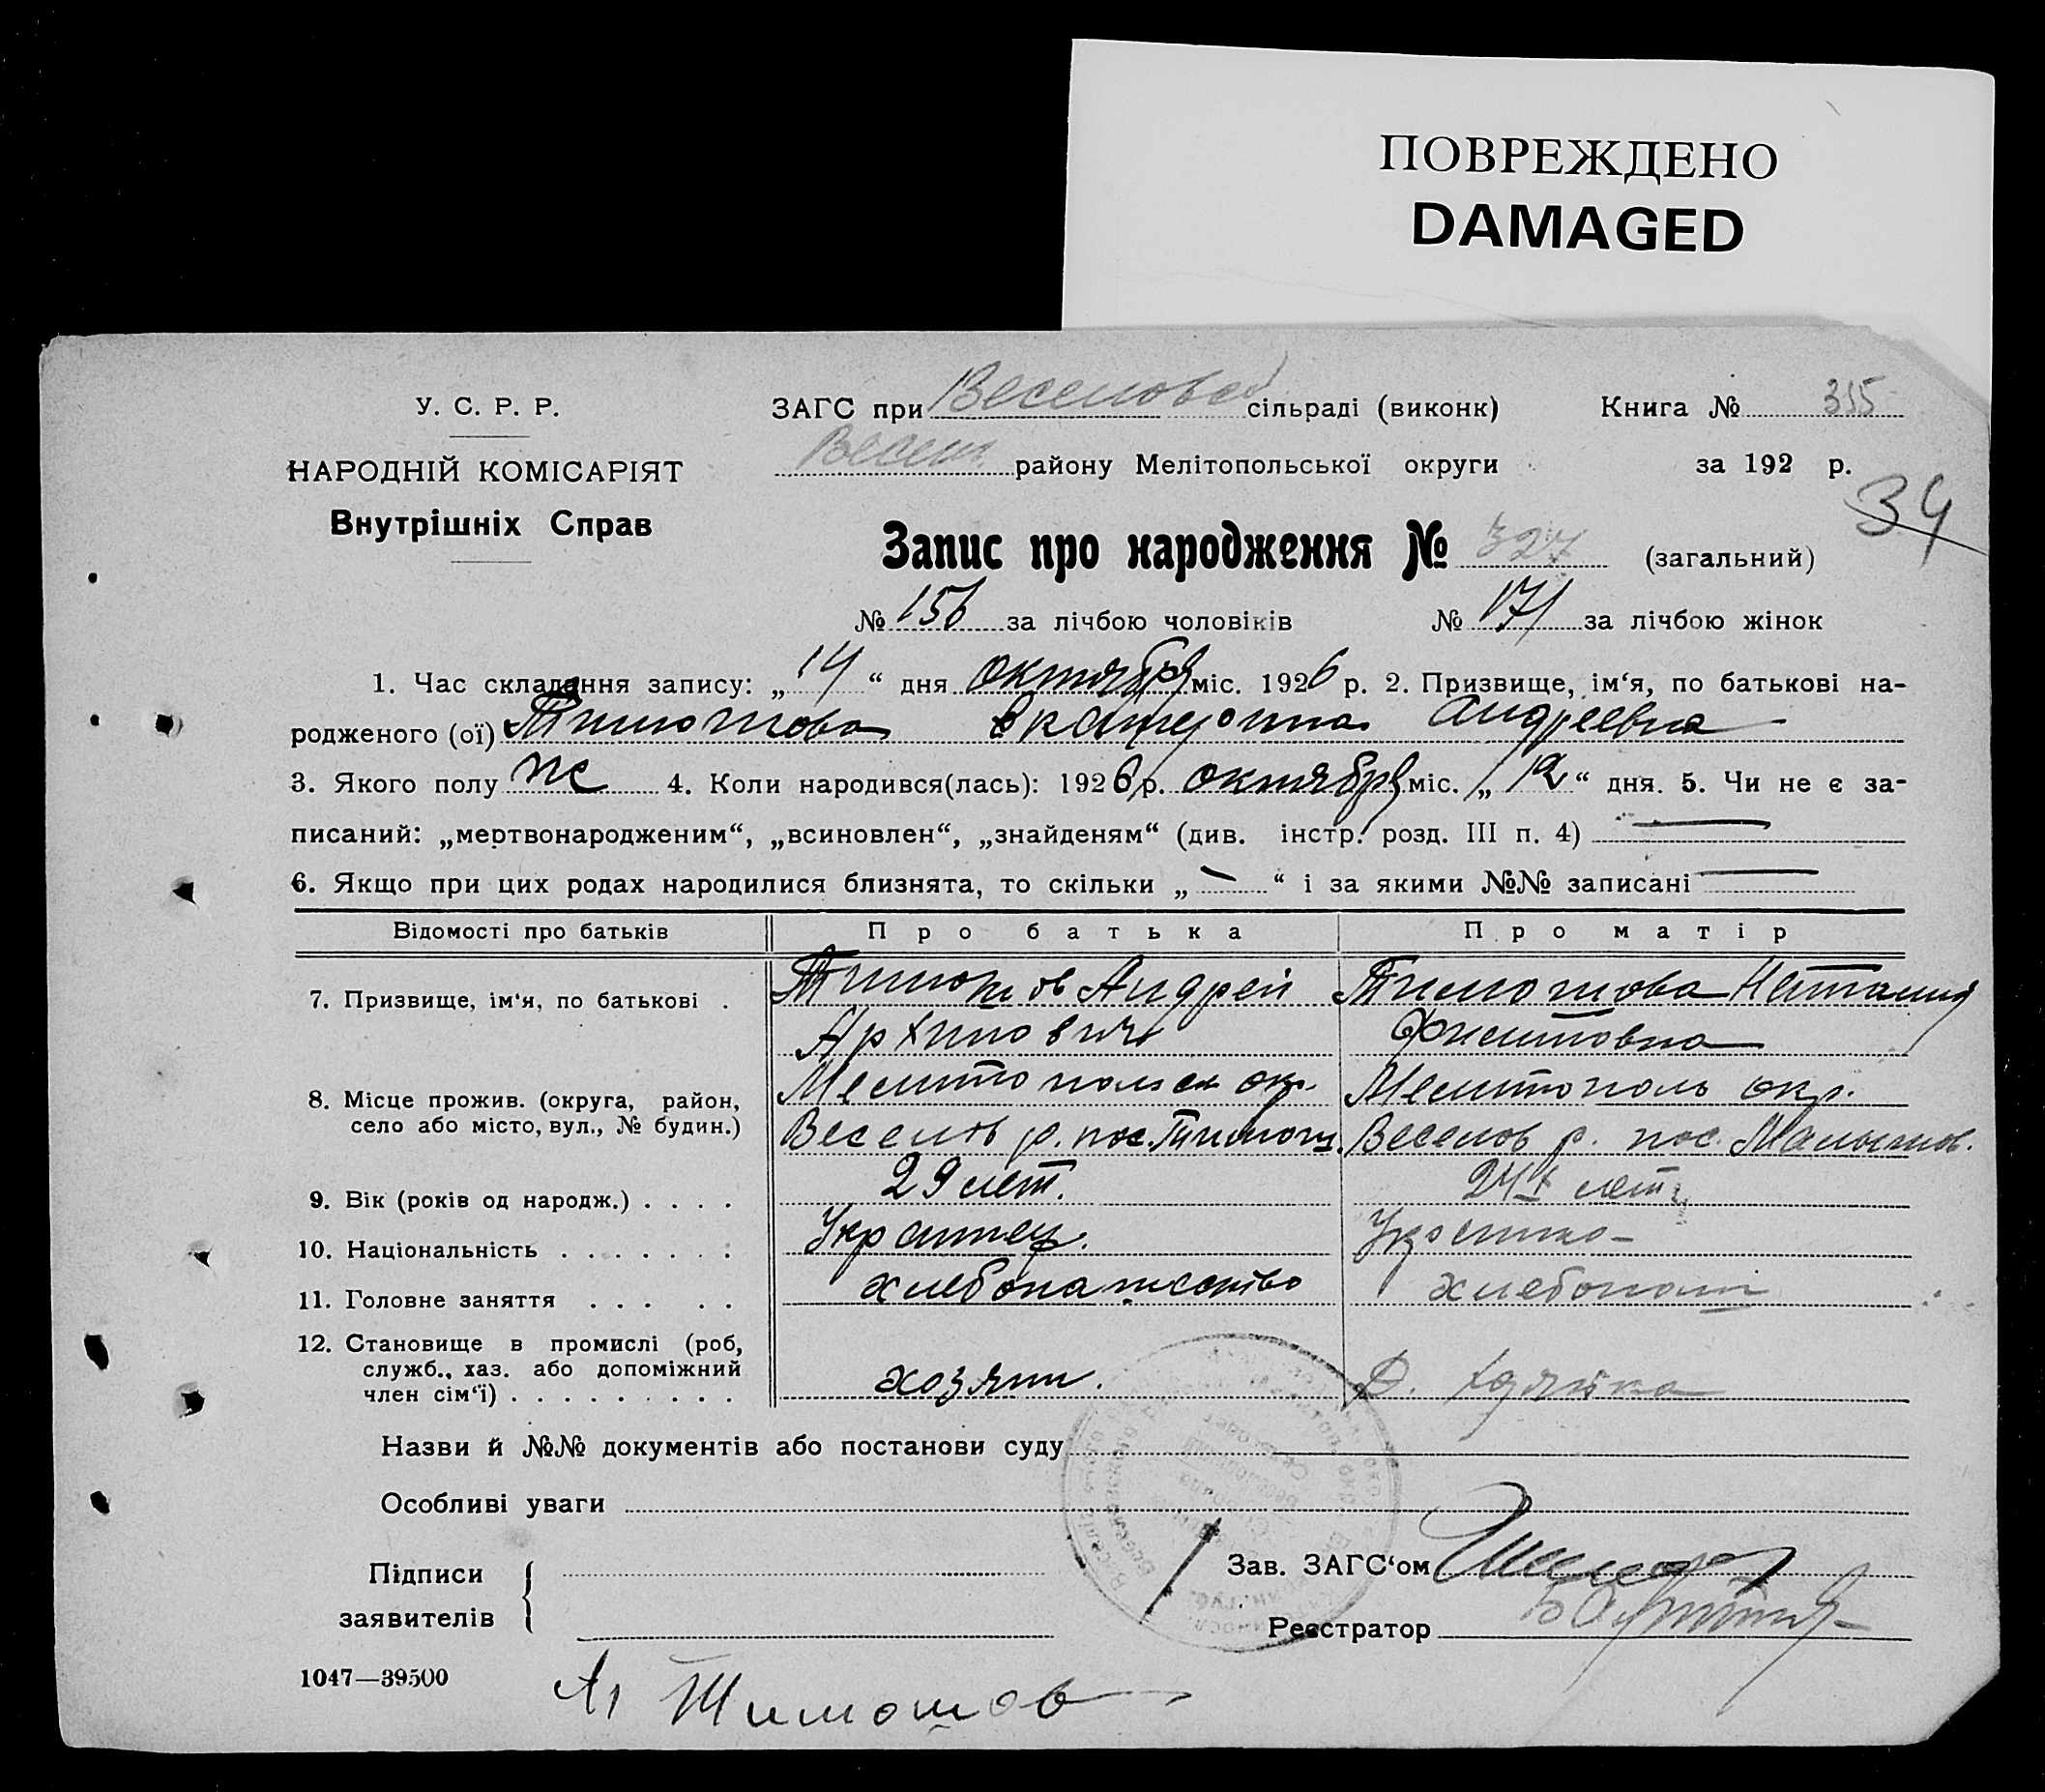 ПОВРЕЖДЕНО
DAMAGED
У. С. Р. Р.
НАРОДНІЙ КОМІСАРІЯТ
Внутрішніх Справ
ЗАГС при Веселовой сільраді (виконк) Книга № 355
Весел района Мелітопольської округи за 192 р.
34
Запис про народження № 327 (загальний)
№ 156 за лічбою чоловіків № 171 за лічбою жінок
1. Час складання запису: „14“ дня октября міс. 1926 р. 2. Призвище, ім‘я, по батькові на-
родженого (ої) Тимошова Екатерина Андреевна
3. Якого полу ж 4. Коли народився(лась): 1926 р. октября міс. „12“ дня. 5. Чи не є за-
писаний: „мертвонародженим“, „всиновлен“, „знайденям“ (див. інстр. розд. III п. 4) —
6. Якщо при цих родах народилися близнята, то скільки „—“ і за якими №№ записані —
Відомості про батьків Про батька Про матір
7. Призвище, ім‘я, по батькові . Тимошов Андрей Тимошова Наталия
Архипович Филиповна
8. Місце прожив. (округа, район, Мелитопольск окр. Мелитополь окр.
село або місто, вул., № будин.) Веселов р. пос. Тимош. Веселов р. пос.
9. Вік (років од народж.) . . . . 29 лет. 24 лет
10. Національність . . . . . . . Украинец. Украинка
11. Головне заняття . . . . . хлебопашество хлебопаш
12. Становище в промислі (роб,
служб., хаз. або допоміжний
член сім‘ї) . . . . . . . . . хозяин.
Назви й №№ документів або постанови суду
Особливі уваги
Підписи
заявителів
Зав. ЗАГС‘ом
Реєстратор
1047—39500
Тимошов